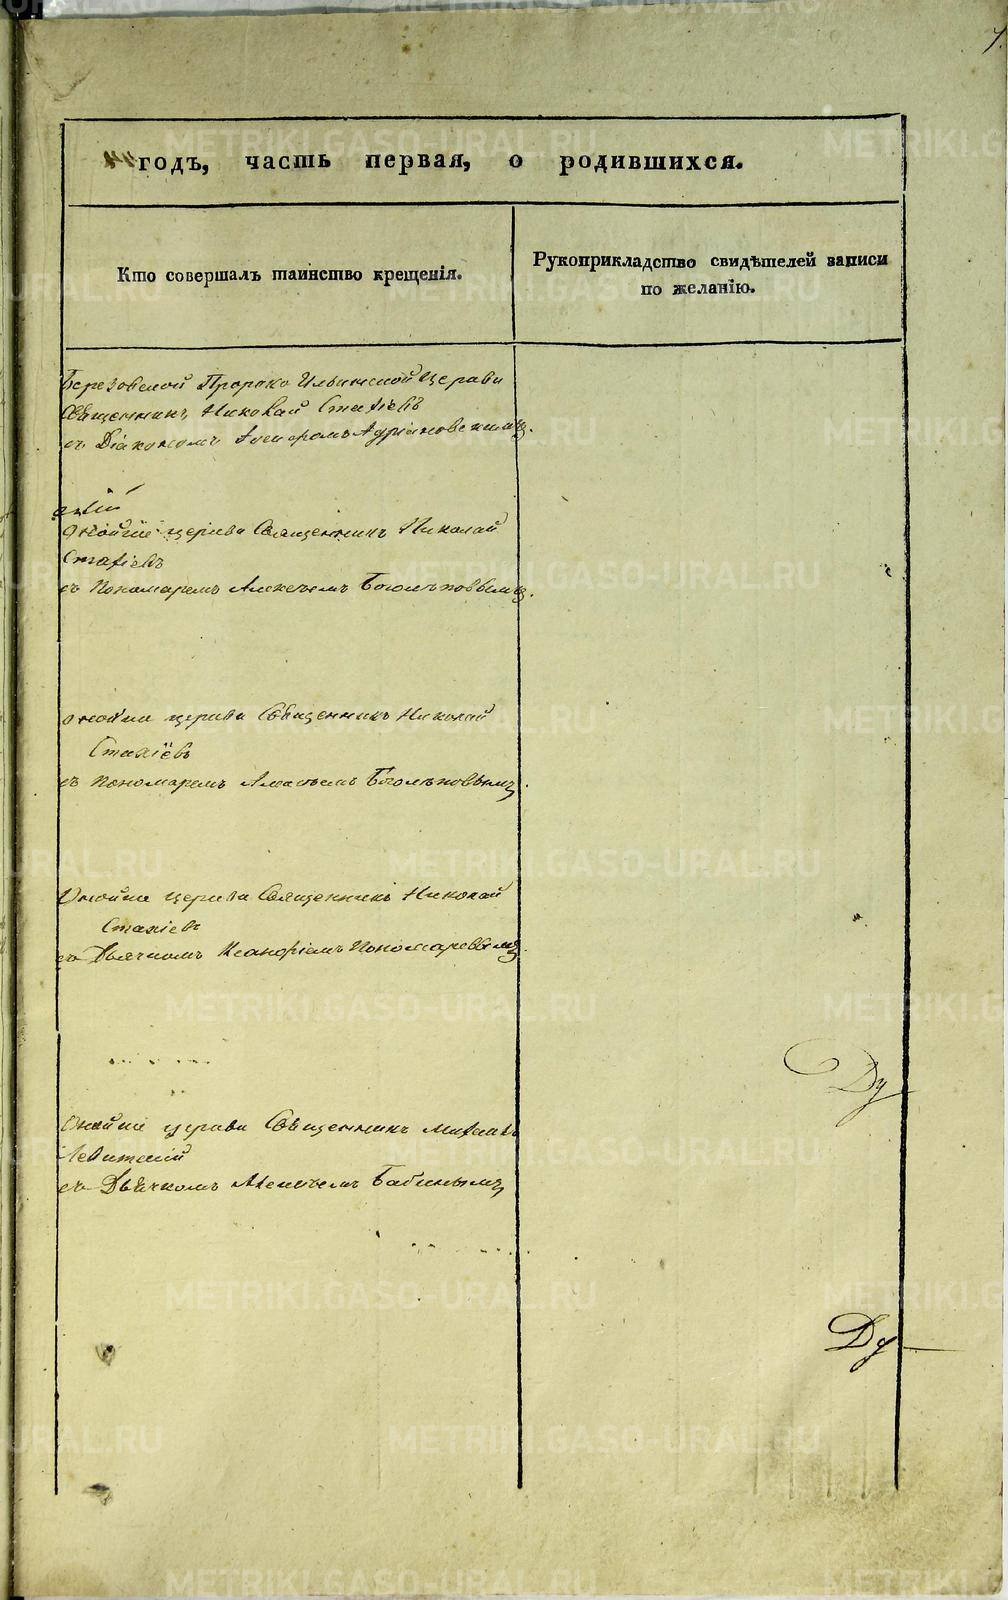 годъ, часть первая, о родившихся.
Кто совершалъ таинство крещенія.
Рукоприкладство свидѣтелей записи
по желанію.
Березовской Пророко Ильинской Церкви
Священникъ Николай Стахіевъ
съ Діакономъ Адріановскимъ.
оной же церкви Священникъ Николай
Стахіевъ
съ Пономаремъ Алексѣемъ Боголѣповымъ.
оной же церкви Священникъ Николай
Стахіевъ
съ пономаремъ Алексѣемъ Боголѣповымъ.
Оной же церкви Священникъ Николай
Стахіевъ
съ Дьячкомъ Пономаревымъ.
Оной же церкви Священникъ Михаилъ
Левитскій
съ Дьячкомъ Алексѣемъ Бабинымъ
METRIKI.GASO-URAL.RU